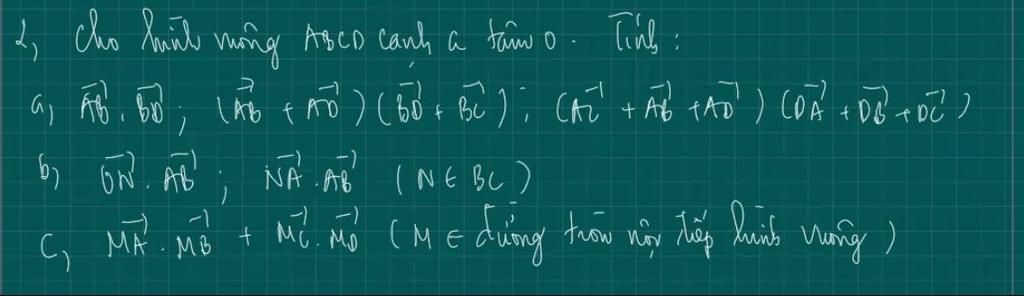 2, Cho hình vuông ABCD cạnh a tâm O. Tính:
a, $\overrightarrow{AB}.\overrightarrow{BD}$ ; $(\overrightarrow{AB} + \overrightarrow{AD})(\overrightarrow{BD} + \overrightarrow{BC})$ ; $(\overrightarrow{AC} + \overrightarrow{AB} + \overrightarrow{AD})(\overrightarrow{DA} + \overrightarrow{DB} + \overrightarrow{DC})$
b, $\overrightarrow{ON}.\overrightarrow{AB}$ ; $\overrightarrow{NA}.\overrightarrow{AB}$ (N ∈ BC)
c, $\overrightarrow{MA}.\overrightarrow{MB} + \overrightarrow{MC}.\overrightarrow{MD}$ (M ∈ đường tròn nội tiếp hình vuông)